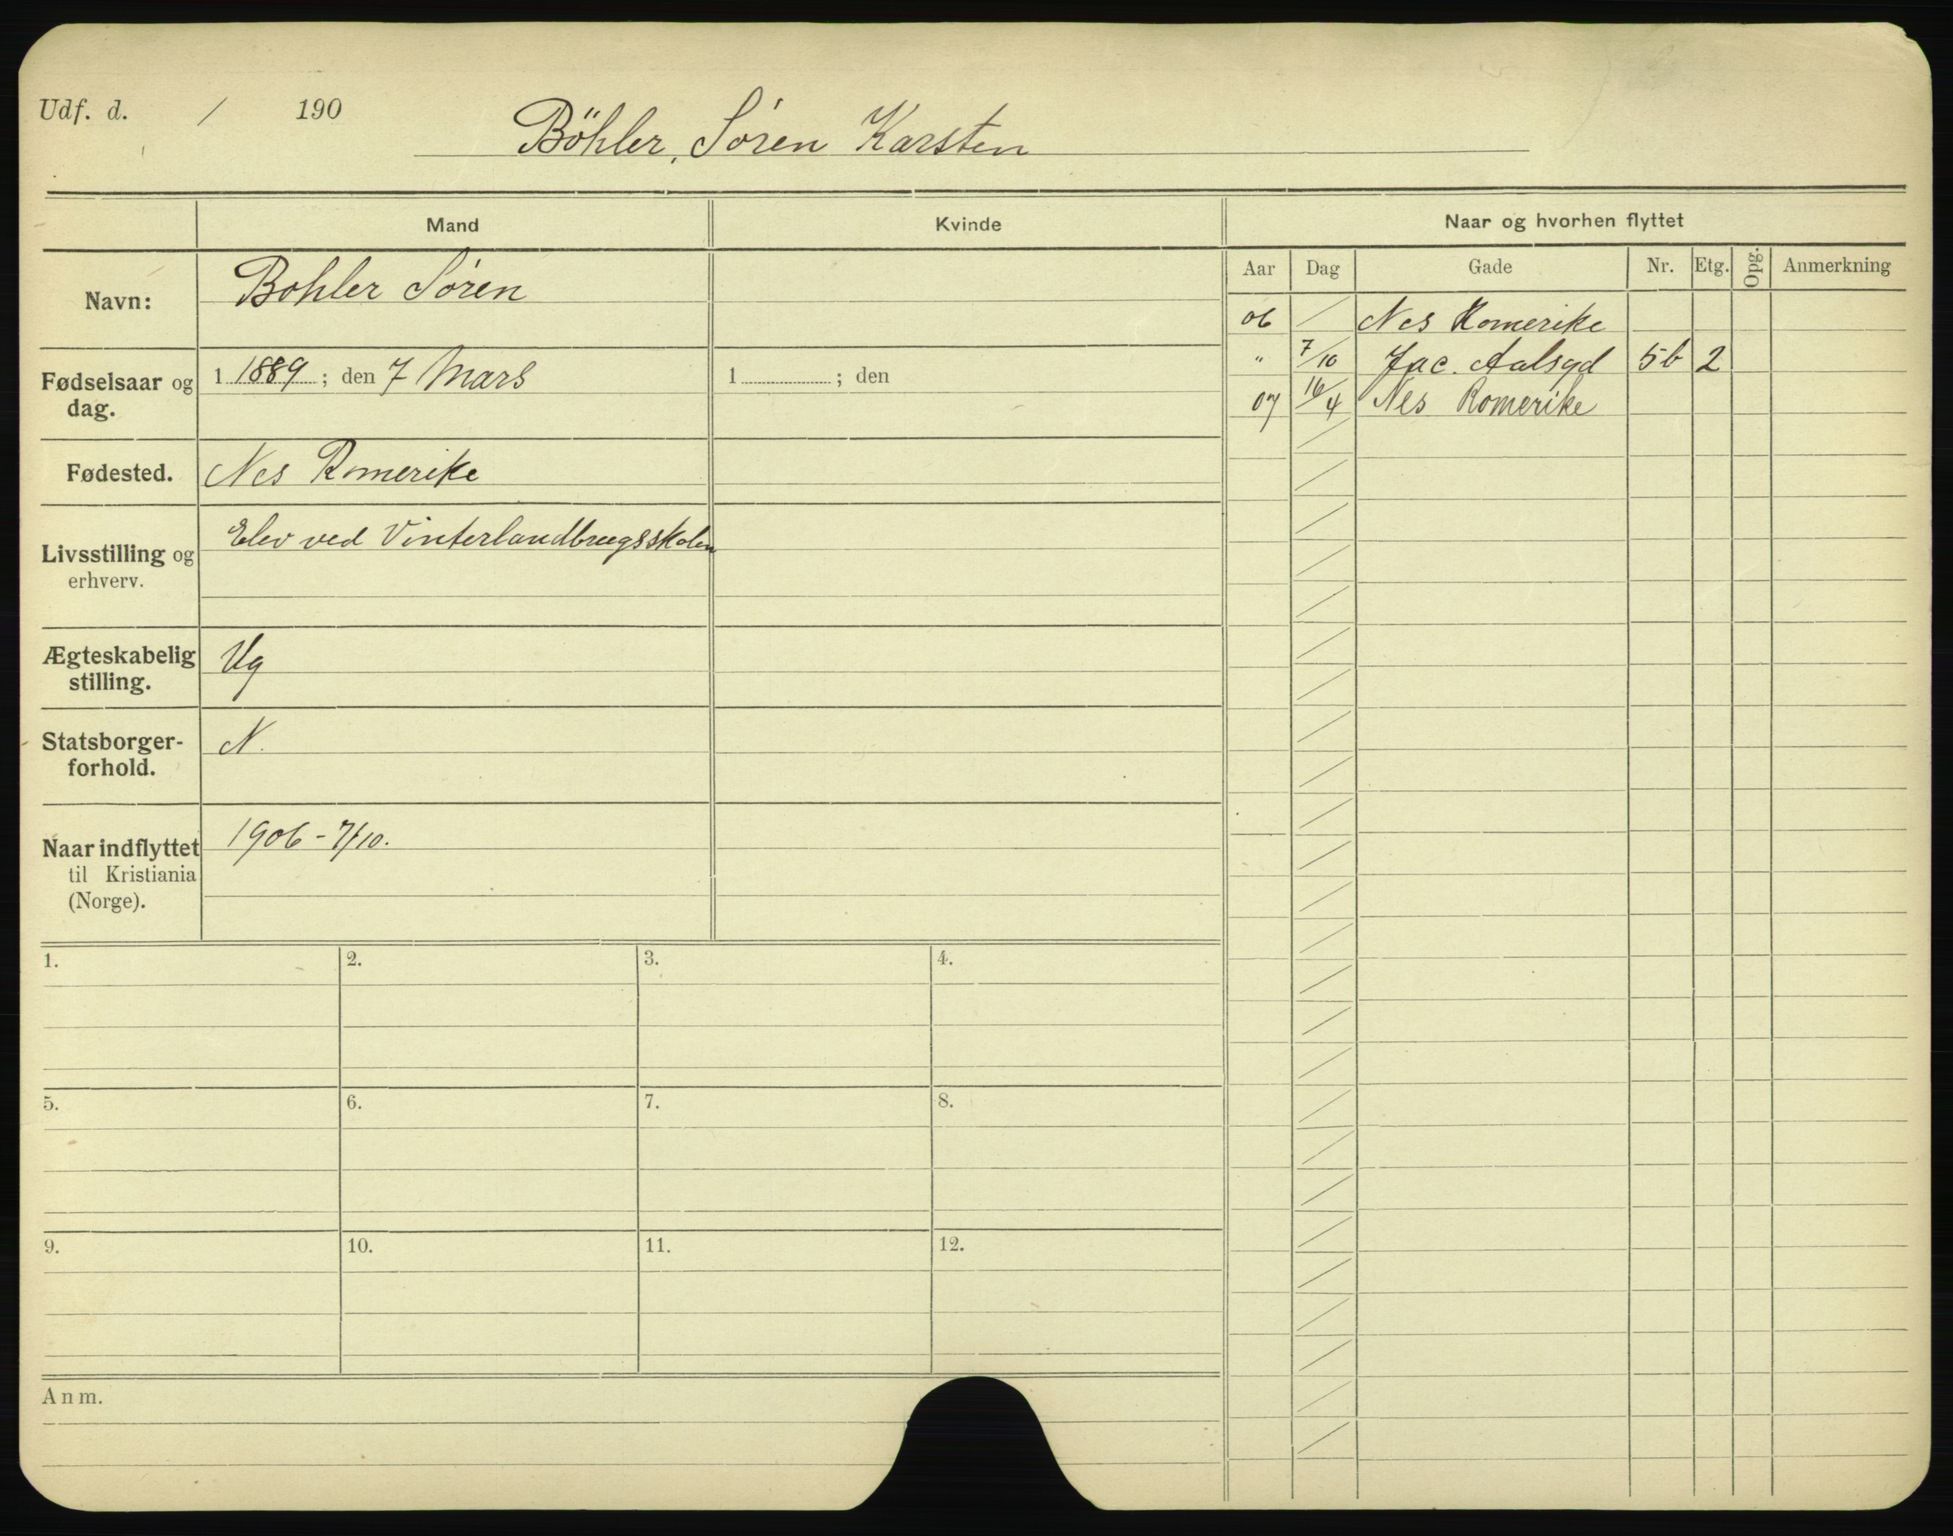 Udf. d. / 190
Böhler, Søren Karsten
Mand Kvinde Naar og hvorhen flyttet
Aar Dag Gade Nr. Etg. Opg. Anmerkning
Navn: Bohler Søren
Fødselsaar og dag. 1 1889 ; den 7 Mars 1 ; den
Fødested. Nes Romerike
Livsstilling og erhverv. Elev ved Vinterlandbrugsskolen
Ægteskabelig stilling. Ug
Statsborgerforhold. N.
Naar indflyttet til Kristiania (Norge). 1906 - 7/10.
06 / Nes Romerike
" 7/10 Jac. Aalsgd 5b 2
07 16/4 Nes Romerike
1. 2. 3. 4.
5. 6. 7. 8.
9. 10. 11. 12.
Anm.